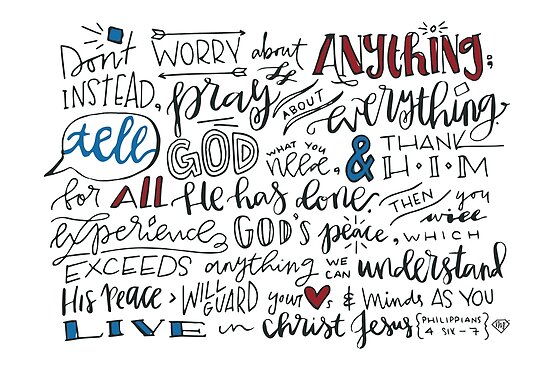 Don't WORRY about ANYTHING;
INSTEAD, pray ABOUT everything.
tell GOD WHAT YOU need, & THANK H·I·M
for ALL He has done. THEN you will
experience GOD'S peace, WHICH
EXCEEDS anything WE CAN understand
HIS PEACE > WILL GUARD your ♥s & minds AS YOU
LIVE in Christ Jesus {PHILIPPIANS 4 SIX-7}